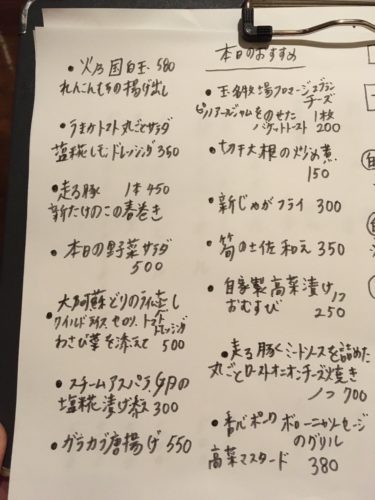 ・火乃国白玉 580
れんこんもちの揚げ出し
・うまかトマト丸ごとサラダ
塩糀しそドレッシング 350
・走る豚 1本450
新たけのこの春巻き
・本日の野菜サラダ
500
・大阿蘇どりのライム蒸し
ワイルドライス、セロリ、トマトドレッシング
わさび菜を添えて 500
・スチームアスパラ、
塩糀漬け添え 300
・ガラカブ唐揚げ 550
本日のおすすめ
・玉名牧場フロマージュブラン
チーズ
ピノノアールジャムをのせた 1枚
バゲットトースト 200
・切干大根の炒め煮
150
・新じゃがフライ 300
・筍の土佐和え 350
・自家製高菜漬け
おむすび 1コ 250
・走る豚ミートソースを詰めた
丸ごとローストオニオンチーズ焼き
1コ 700
・香心ポーク ボローニャソーセージ
のグリル
高菜マスタード 380